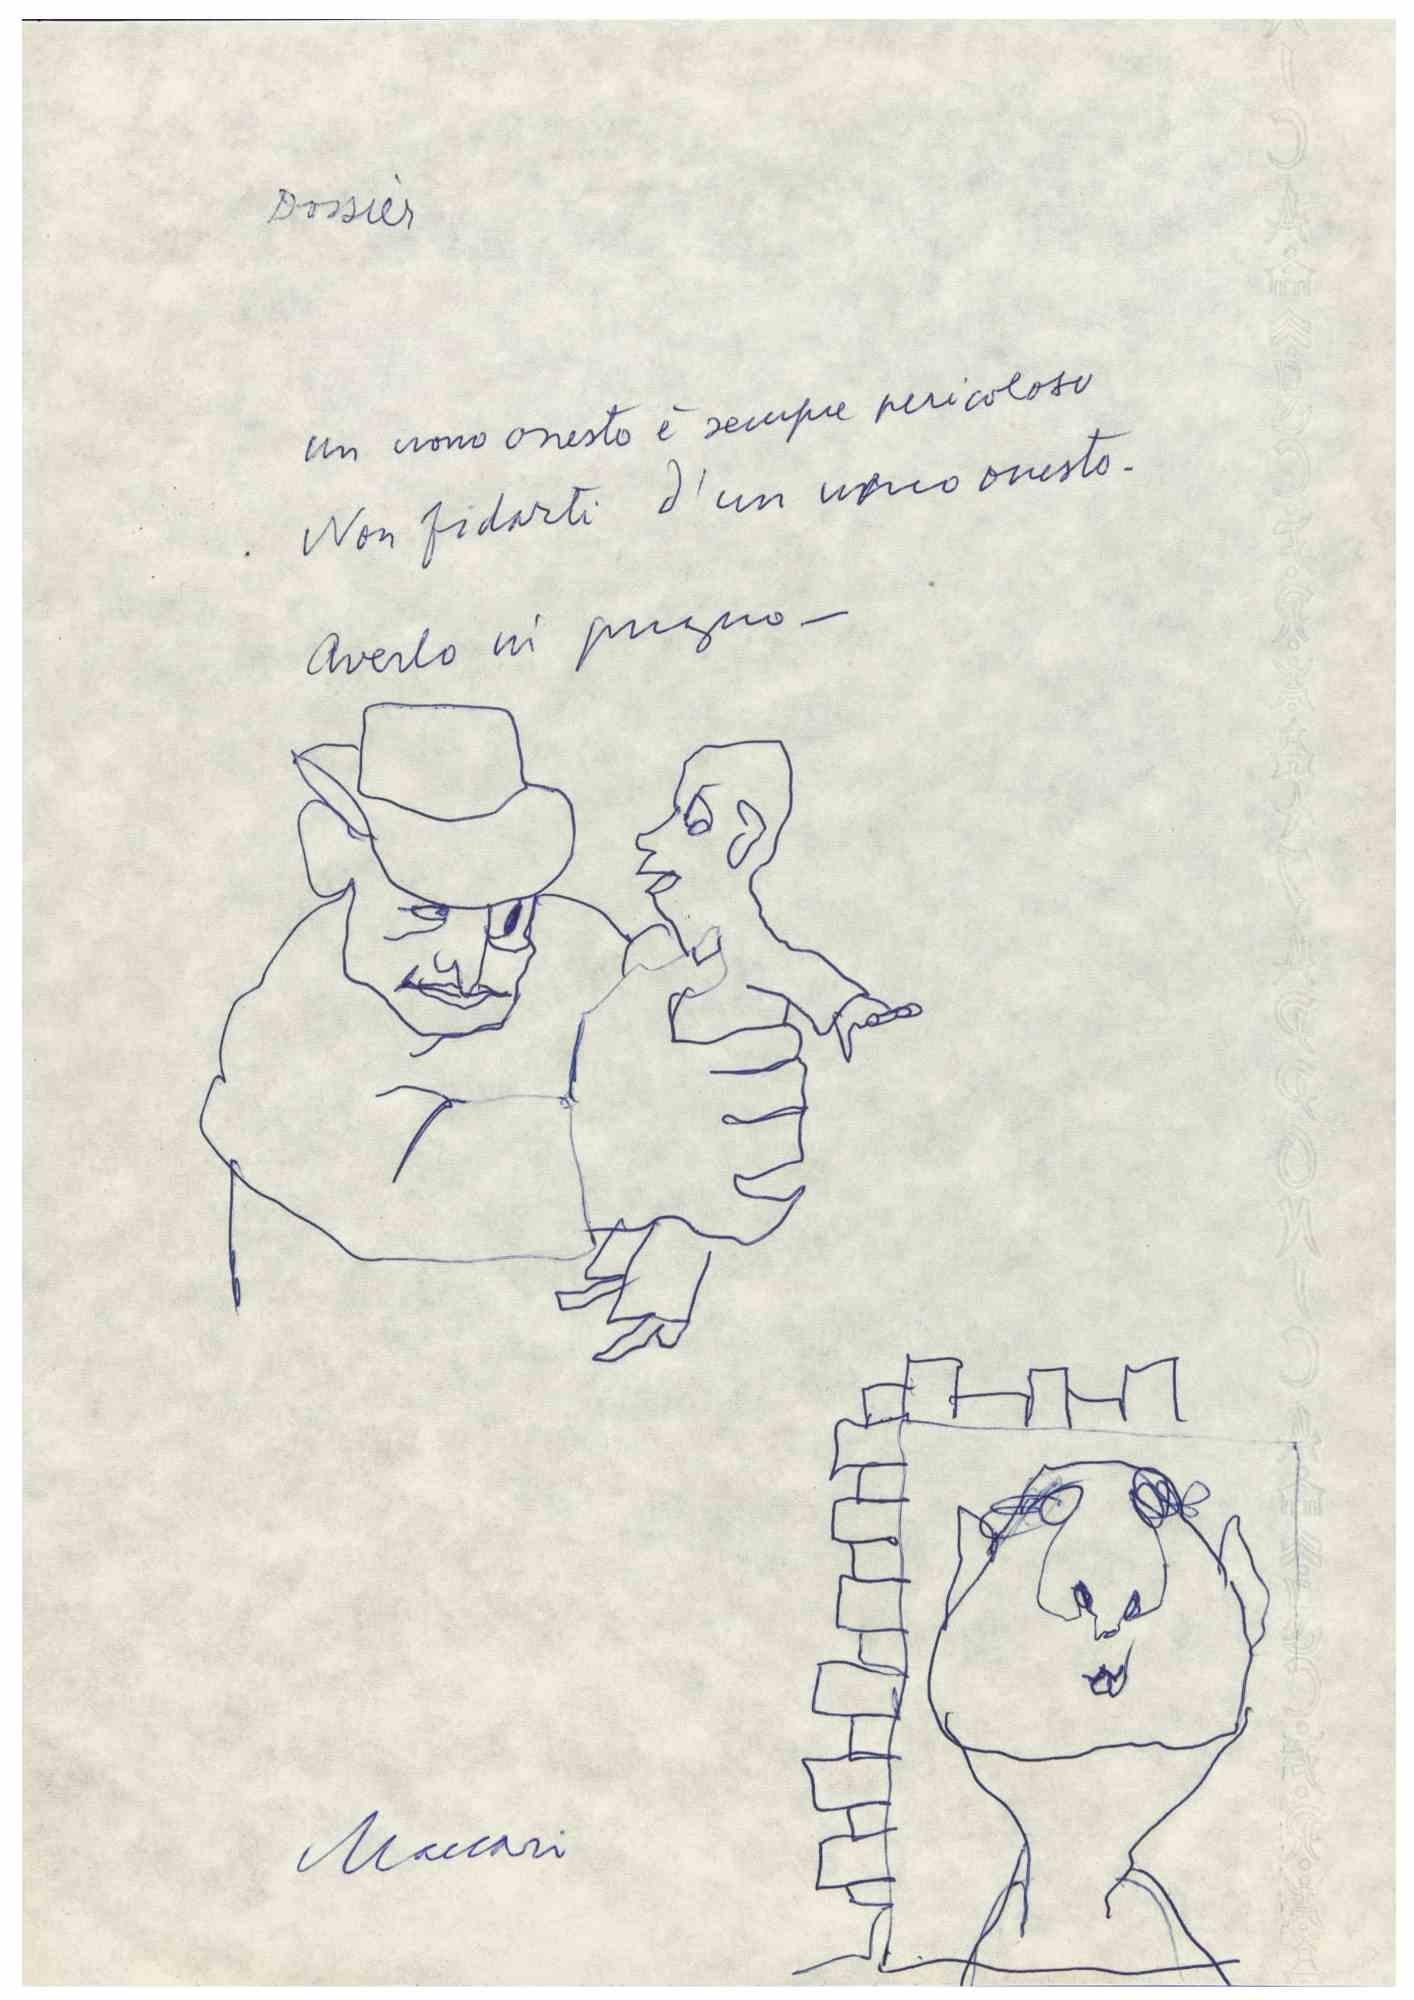 Dossièr
un uomo onesto è sempre pericoloso
Non fidarti d'un uomo onesto.
Averlo in pugno —
Maccari